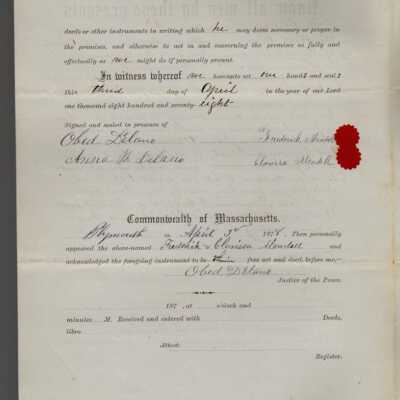 deeds or other instruments in writing which he may deem necessary or proper in
the premises, and otherwise to act in and concerning the premises as fully and
effectually as we might do if personally present.
In witness whereof we hereunto set our hands and seals
this third day of April in the year of our Lord
one thousand eight hundred and seventy-eight
Signed and sealed in presence of
Obed Delano Frederick
Anna Delano Mendell
Commonwealth of Massachusetts.
Plymouth ss April 3rd 1878. Then personally
appeared the above-named Frederick & Clarissa Mendell and
acknowledged the foregoing instrument to be their free act and deed, before me,—
Obed Delano
Justice of the Peace.
187 , at o'clock and
minutes M. Received and entered with Deeds,
libro
Attest:
Register.